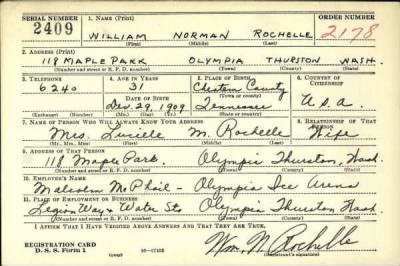 SERIAL NUMBER 1. NAME (Print) ORDER NUMBER
2409 WILLIAM NORMAN ROCHELLE 2178
(First) (Middle) (Last)
2. ADDRESS (Print)
118 MAPLE PARK OLYMPIA THURSTON WASH.
(Number and street or R. F. D. number) (Town) (County) (State)
3. TELEPHONE 4. AGE IN YEARS 5. PLACE OF BIRTH 6. COUNTRY OF CITIZENSHIP
6240 31 Cheatem County
DATE OF BIRTH (Town or county)
Dec. 29, 1909 Tennessee U.S.A.
(Exchange) (Number) (Mo.) (Day) (Yr.) (State or country)
7. NAME OF PERSON WHO WILL ALWAYS KNOW YOUR ADDRESS 8. RELATIONSHIP OF THAT PERSON
Mrs. Lucille M. Rochelle Wife
(Mr., Mrs., Miss) (First) (Middle) (Last)
9. ADDRESS OF THAT PERSON
118 Maple Park. Olympia Thurston, Wash.
(Number and street or R. F. D. number) (Town) (County) (State)
10. EMPLOYER'S NAME
Malcolm McPhail - Olympia Ice Arena
11. PLACE OF EMPLOYMENT OR BUSINESS
Legion Way & Water Sts Olympia Thurston Wash.
(Number and street or R. F. D. number) (Town) (County) (State)
I AFFIRM THAT I HAVE VERIFIED ABOVE ANSWERS AND THAT THEY ARE TRUE.
REGISTRATION CARD
D. S. S. Form 1 Wm. N. Rochelle
(Registrant's signature)